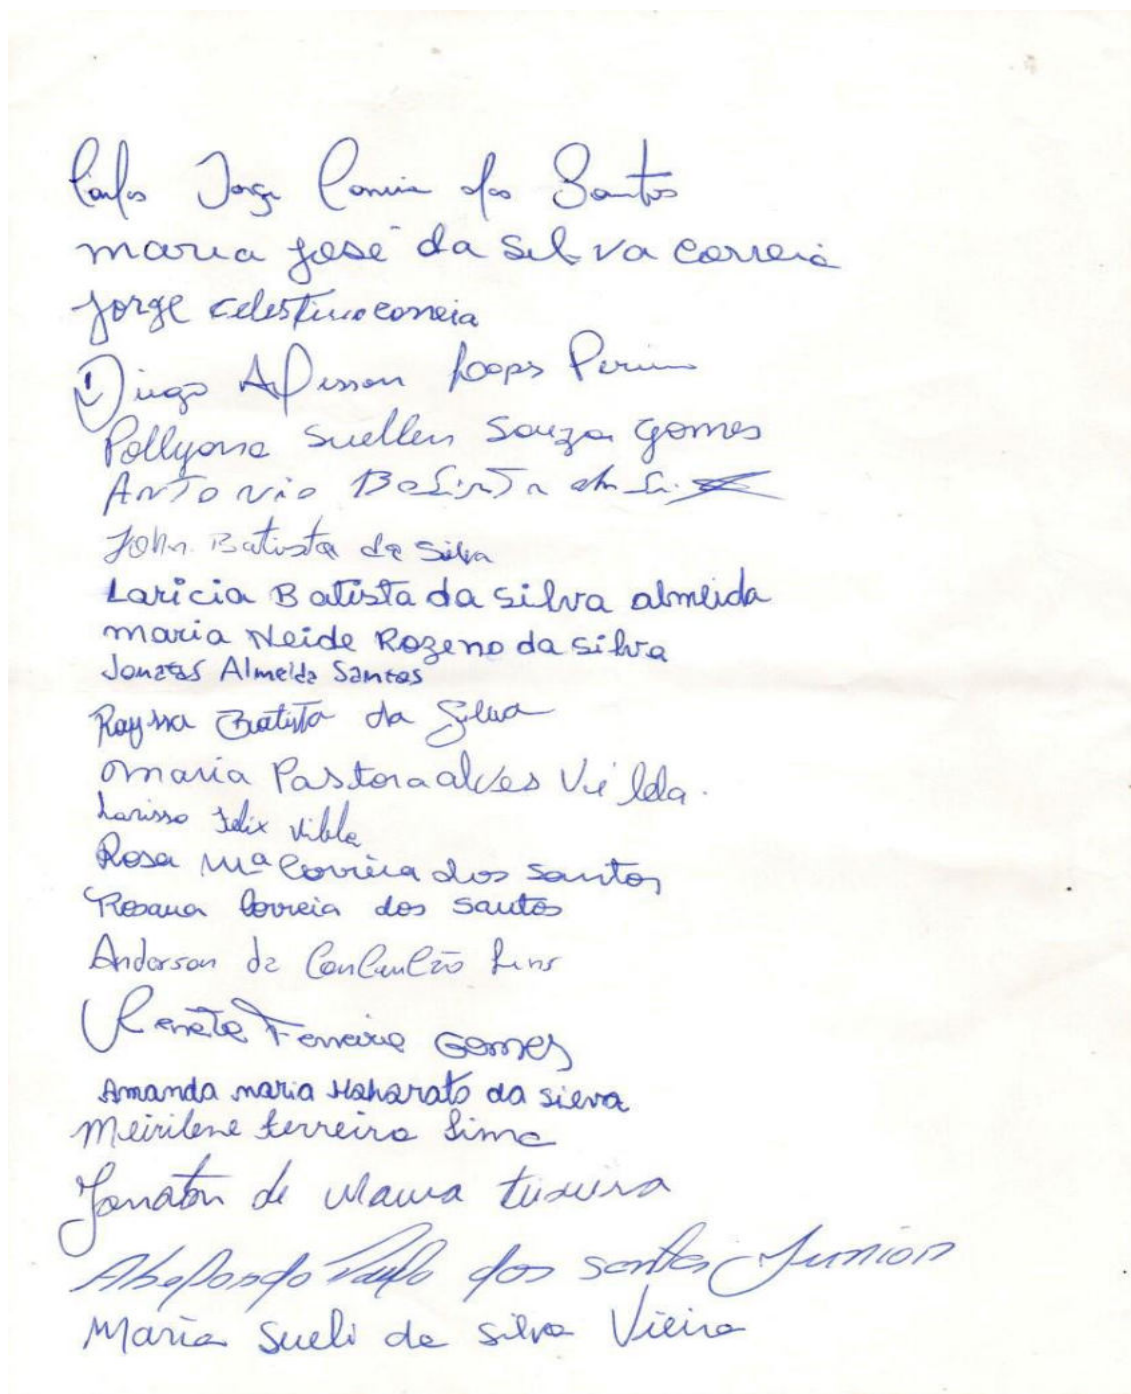 Carlos Jorge Correia dos Santos
maria josé da Silva Correia
Jorge celestino correia
Diego Alisson Lopes
Pollyana Suellen Souza Gomes
Antonio Batista da
John Batista da Silva
Laricia Batista da Silva almeida
maria Neide Rozeno da silva
Jonatas Almeida Santos
Rayssa Batista da Silva
maria Pastora alves Vilela.
Larissa Felix Vilela
Rosa Mª Correia dos Santos
Rosana Correia dos Santos
Anderson da Conceição Lins
Renata Ferreira Gomes
Amanda maria da silva
Meirilene ferreira Lima
Jonaton de Moura
Paulo dos santos Junior
Maria Sueli da Silva Vieira